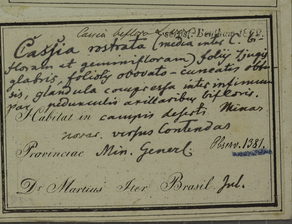 Cassia rostrata (media inter C. bi-
floram et geminifloram) foliis 2jugis
glabris, foliolis obovato-cuneatis obtu-
sis, glandula compressa inter infimum
par, pedunculis axillaribus bifloris.
Habitat in campis deserti Minas
novas versus Contendas
Provinciae Min. Generl. Observ. 1381.
Dr Martius Iter Brasil. Jul.